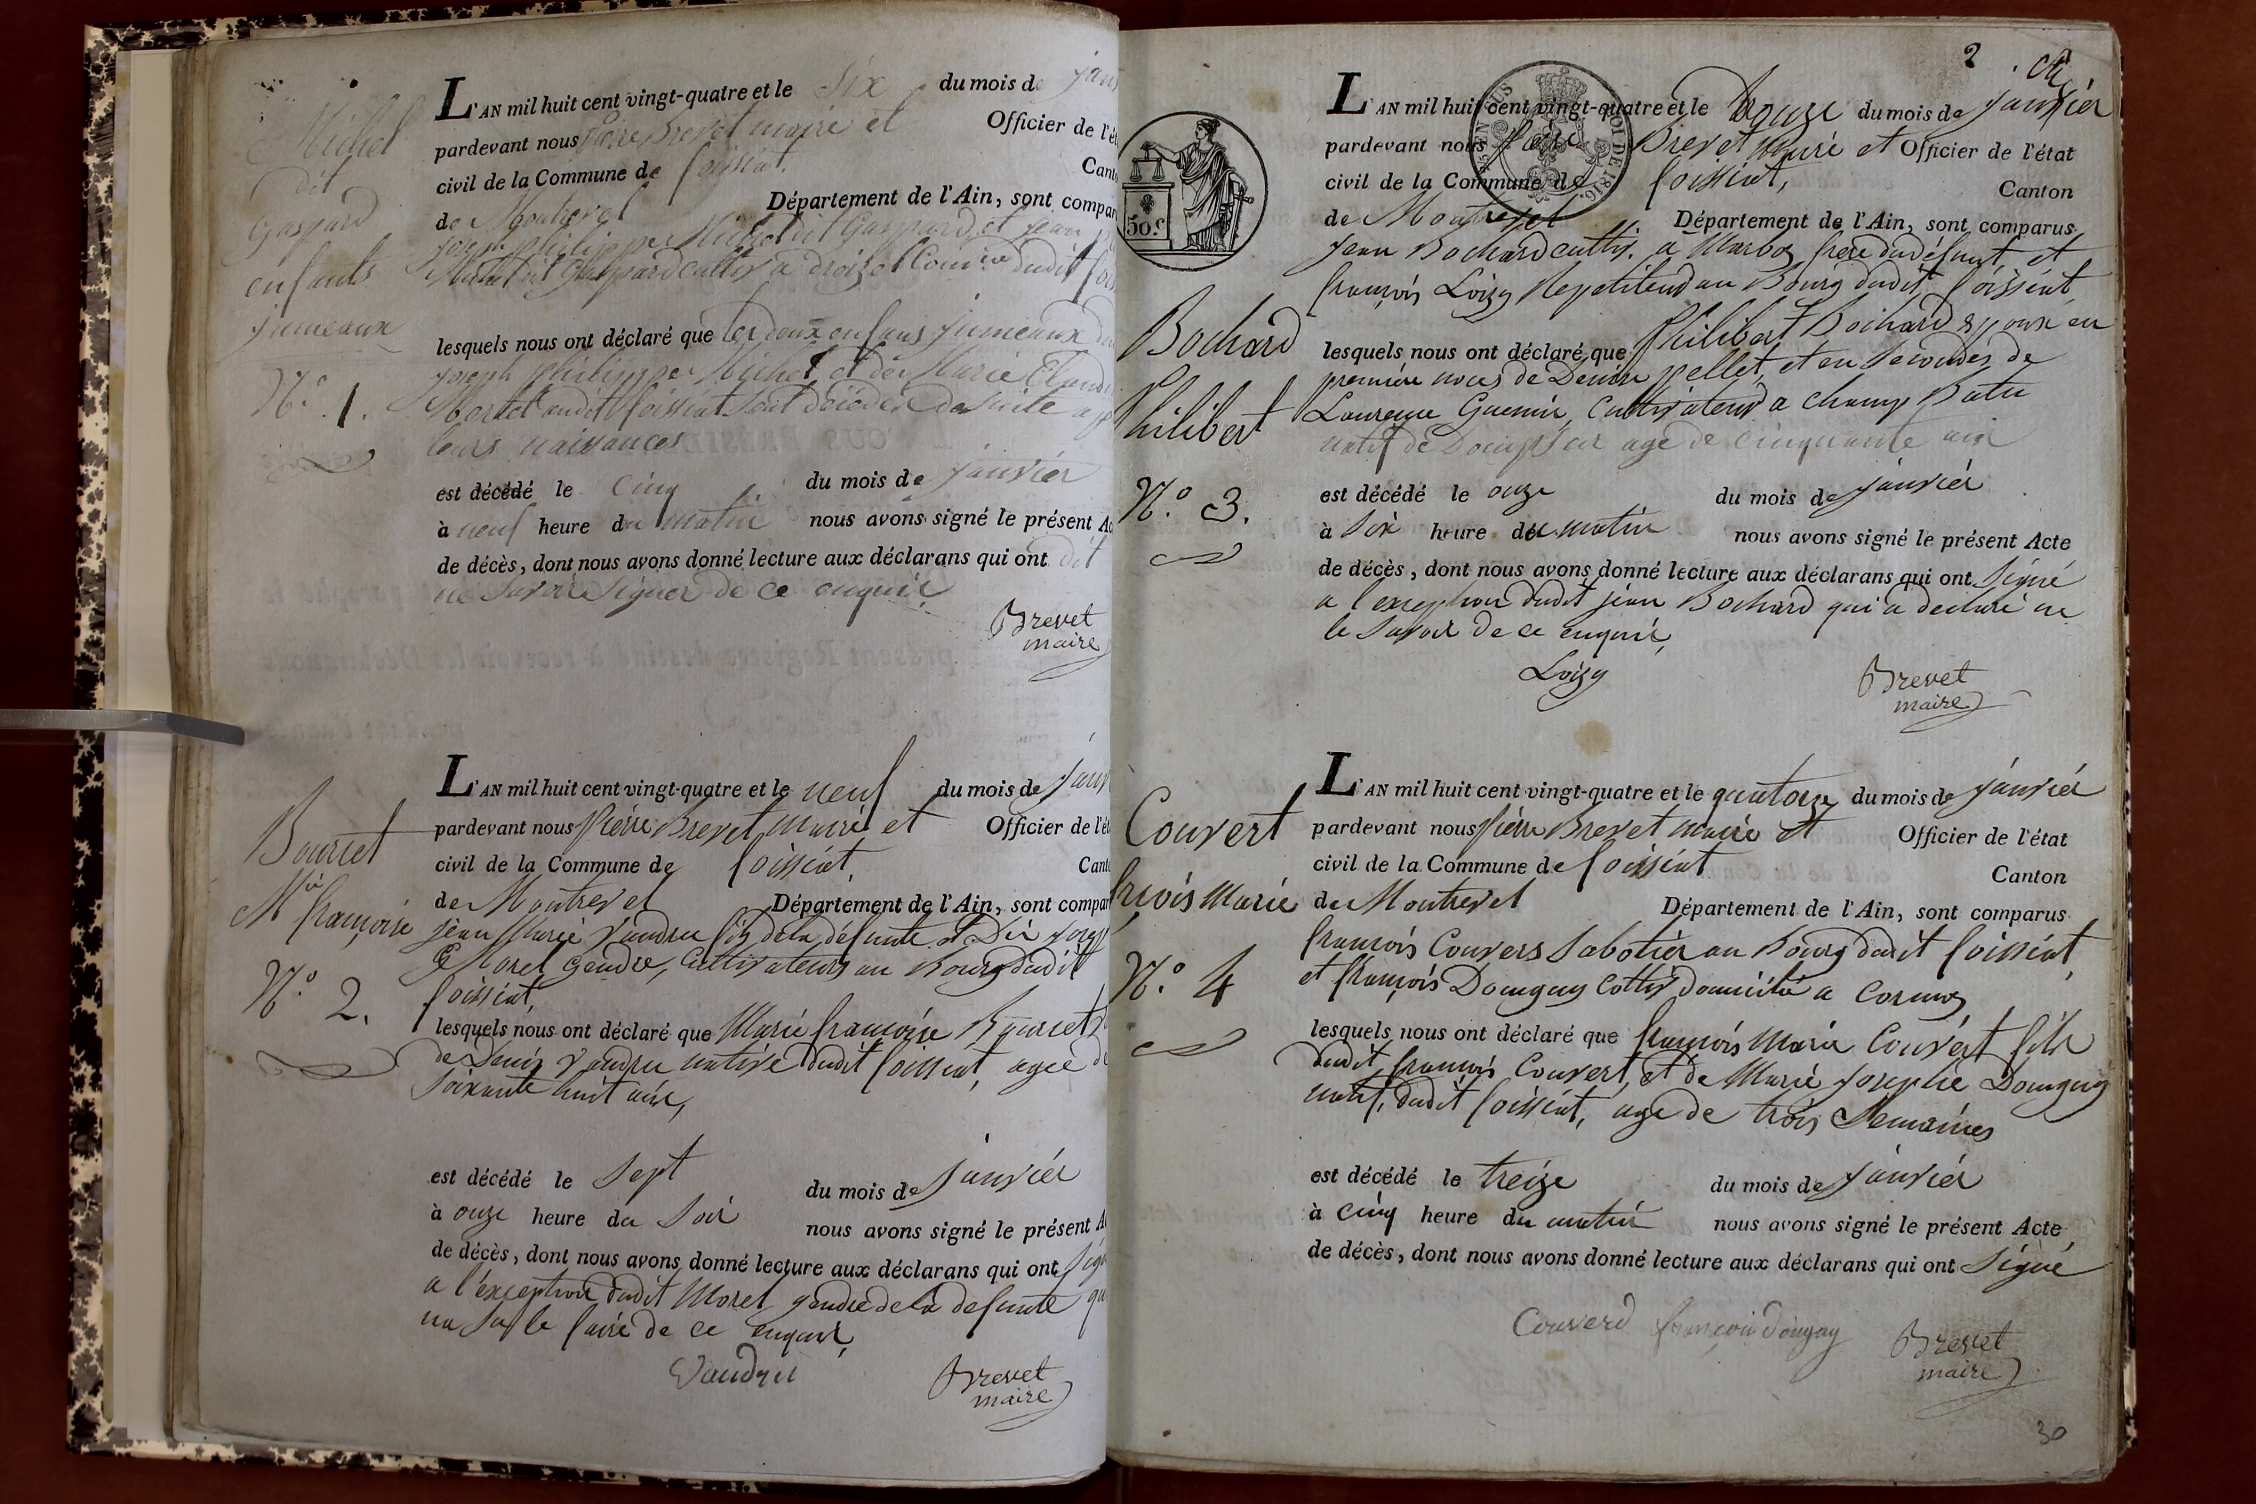 Michel
dit
Gaspard
enfants
jumeaux
N.º 1.
L'AN mil huit cent vingt-quatre et le six du mois de janv
pardevant nous pierre Brevet maire et Officier de l'ét
civil de la Commune de foissiat. Canto
de Montrevel Département de l'Ain, sont compar
joseph philippe Michel dit Gaspard, et jean
Michel dit Gaspard cultiv. a dudit foi
lesquels nous ont déclaré que les deux enfans jumeaux
joseph philippe Michel et de Marie
Mortel audit foissiat sont décédés de suite a
leurs naissances
est décédé le cinq du mois de janvier
à neuf heure du matin nous avons signé le présent Ac
de décès, dont nous avons donné lecture aux déclarans qui ont dit
ne savoir signer de ce enquis
Brevet
maire
Bourcet
M.ie françoise
N.º 2.
L'AN mil huit cent vingt-quatre et le neuf du mois de janv
pardevant nous pierre Brevet, maire et Officier de l'ét
civil de la Commune de foissiat, Canto
de Montrevel Département de l'Ain, sont compar
jean Marie Vaudru fils de la défunte et joseph
Morel gendre, cultivateurs au Bourg dudit
foissiat,
lesquels nous ont déclaré que Marie françoise Bourcet
de Denis Vaudru native dudit foissiat, agée de
soixante huit ans,
est décédé le sept du mois de janvier
à onze heure du soir nous avons signé le présent A
de décès, dont nous avons donné lecture aux déclarans qui ont sign
a l'exception dudit Morel gendre de la défunte qu
na su le faire de ce enquis,
Vaudru
Brevet
maire
2
50.C
Bochard
Philibert
N.º 3.
L'AN mil huit cent vingt-quatre et le douze du mois de janvier
pardevant nous pierre Brevet maire et Officier de l'état
civil de la Commune de foissiat, Canton
de Montrevel Département de l'Ain, sont comparus
jean Bochard cultiv. a Marboz frère du défunt et
françois Loizy au Bourg dudit foissiat
lesquels nous ont déclaré que Philibert Bochard epoux en
première noces de Denise pellet, et en secondes de
Laurence Guemin, cultivateur a champ Batu
natif de agé de cinquante ans
est décédé le onze du mois de janvier
à six heure du matin nous avons signé le présent Acte
de décès, dont nous avons donné lecture aux déclarans qui ont signé
a l'exception dudit jean Bochard qui a déclaré ne
le savoir de ce enquis,
Loizy
Brevet
maire
Couvert
fr\ançois Marie
N.º 4
L'AN mil huit cent vingt-quatre et le quatorze du mois de janvier
pardevant nous pierre Brevet maire et Officier de l'état
civil de la Commune de foissiat Canton
de Montrevel Département de l'Ain, sont comparus
françois Couvers sabotier au Bourg dudit foissiat
et françois Douguy cultiv domicilié a Cormoz
lesquels nous ont déclaré que françois Marie Couvert fils
dudit françois Couvert, et de Marie josephe Douguy
natif, dudit foissiat, age de trois semaines
est décédé le treize du mois de janvier
à cinq heure du matin nous avons signé le présent Acte
de décès, dont nous avons donné lecture aux déclarans qui ont signé
Couverd françois dougny
Brevet
maire
30